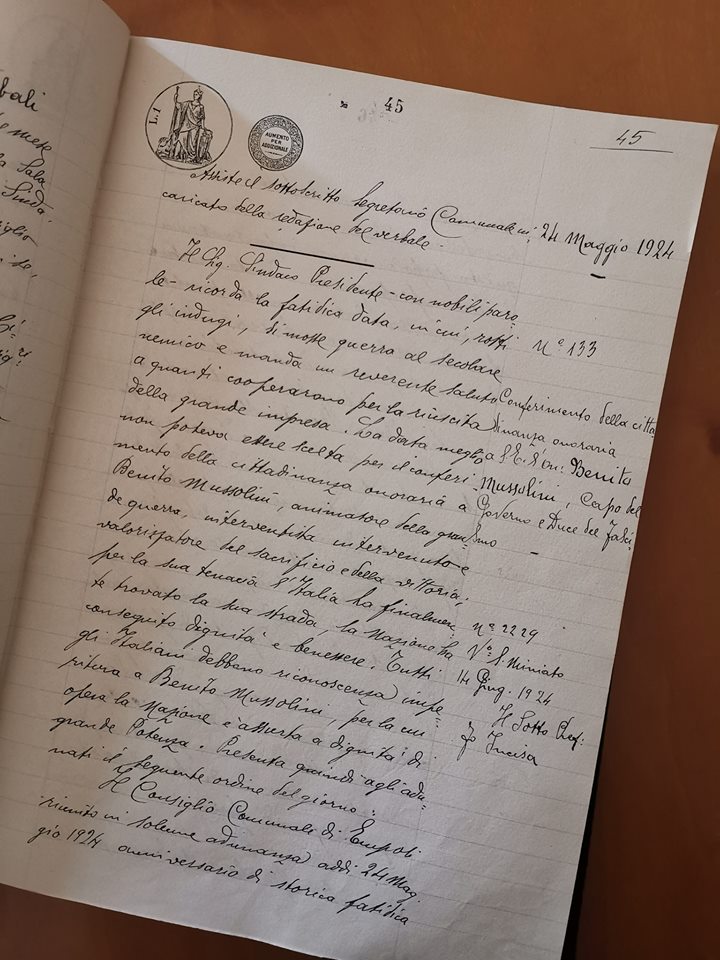 bali
45
45
L. 1
AUMENTO
PER
ADDIZIONALE
Assiste il sottoscritto Segretario Comunale in-
caricato della redazione del verbale.
24 Maggio 1924
Il Sig. Sindaco Presidente - con nobili paro
le - ricorda la fatidica data, in cui, rotti
gli indugi, si mosse guerra al secolare
nemico e manda un reverente saluto
a quanti cooperarono per la riuscita
della grande impresa. La data meglio
non poteva essere scelta per il conferi
mento della cittadinanza onoraria a
Benito Mussolini, animatore della gran
de guerra, interventista intervenuto e
valorizzatore del sacrificio e della vittoria;
per la sua tenacia l'Italia ha finalmen
te trovato la sua strada, la Nazione ha
conseguito dignità e benessere. Tutti
gli Italiani debbono riconoscenza impe
ritura a Benito Mussolini, per la cui
opera la Nazione è assurta a dignità di
grande Potenza. Presenta quindi agli adu
nati il seguente ordine del giorno:
Il Consiglio Comunale di Empoli
riunito in solenne adunanza addì 24 Mag
gio 1924 anniversario di storica fatidica
N° 133
Conferimento della citta
dinanza onoraria
a S. E. l'On: Benito
Mussolini, Capo del
Governo e Duce del Fasci-
smo
n° 2229
V° S. Miniato
14 Giug. 1924
Il Sotto Pref:
fo Incisa